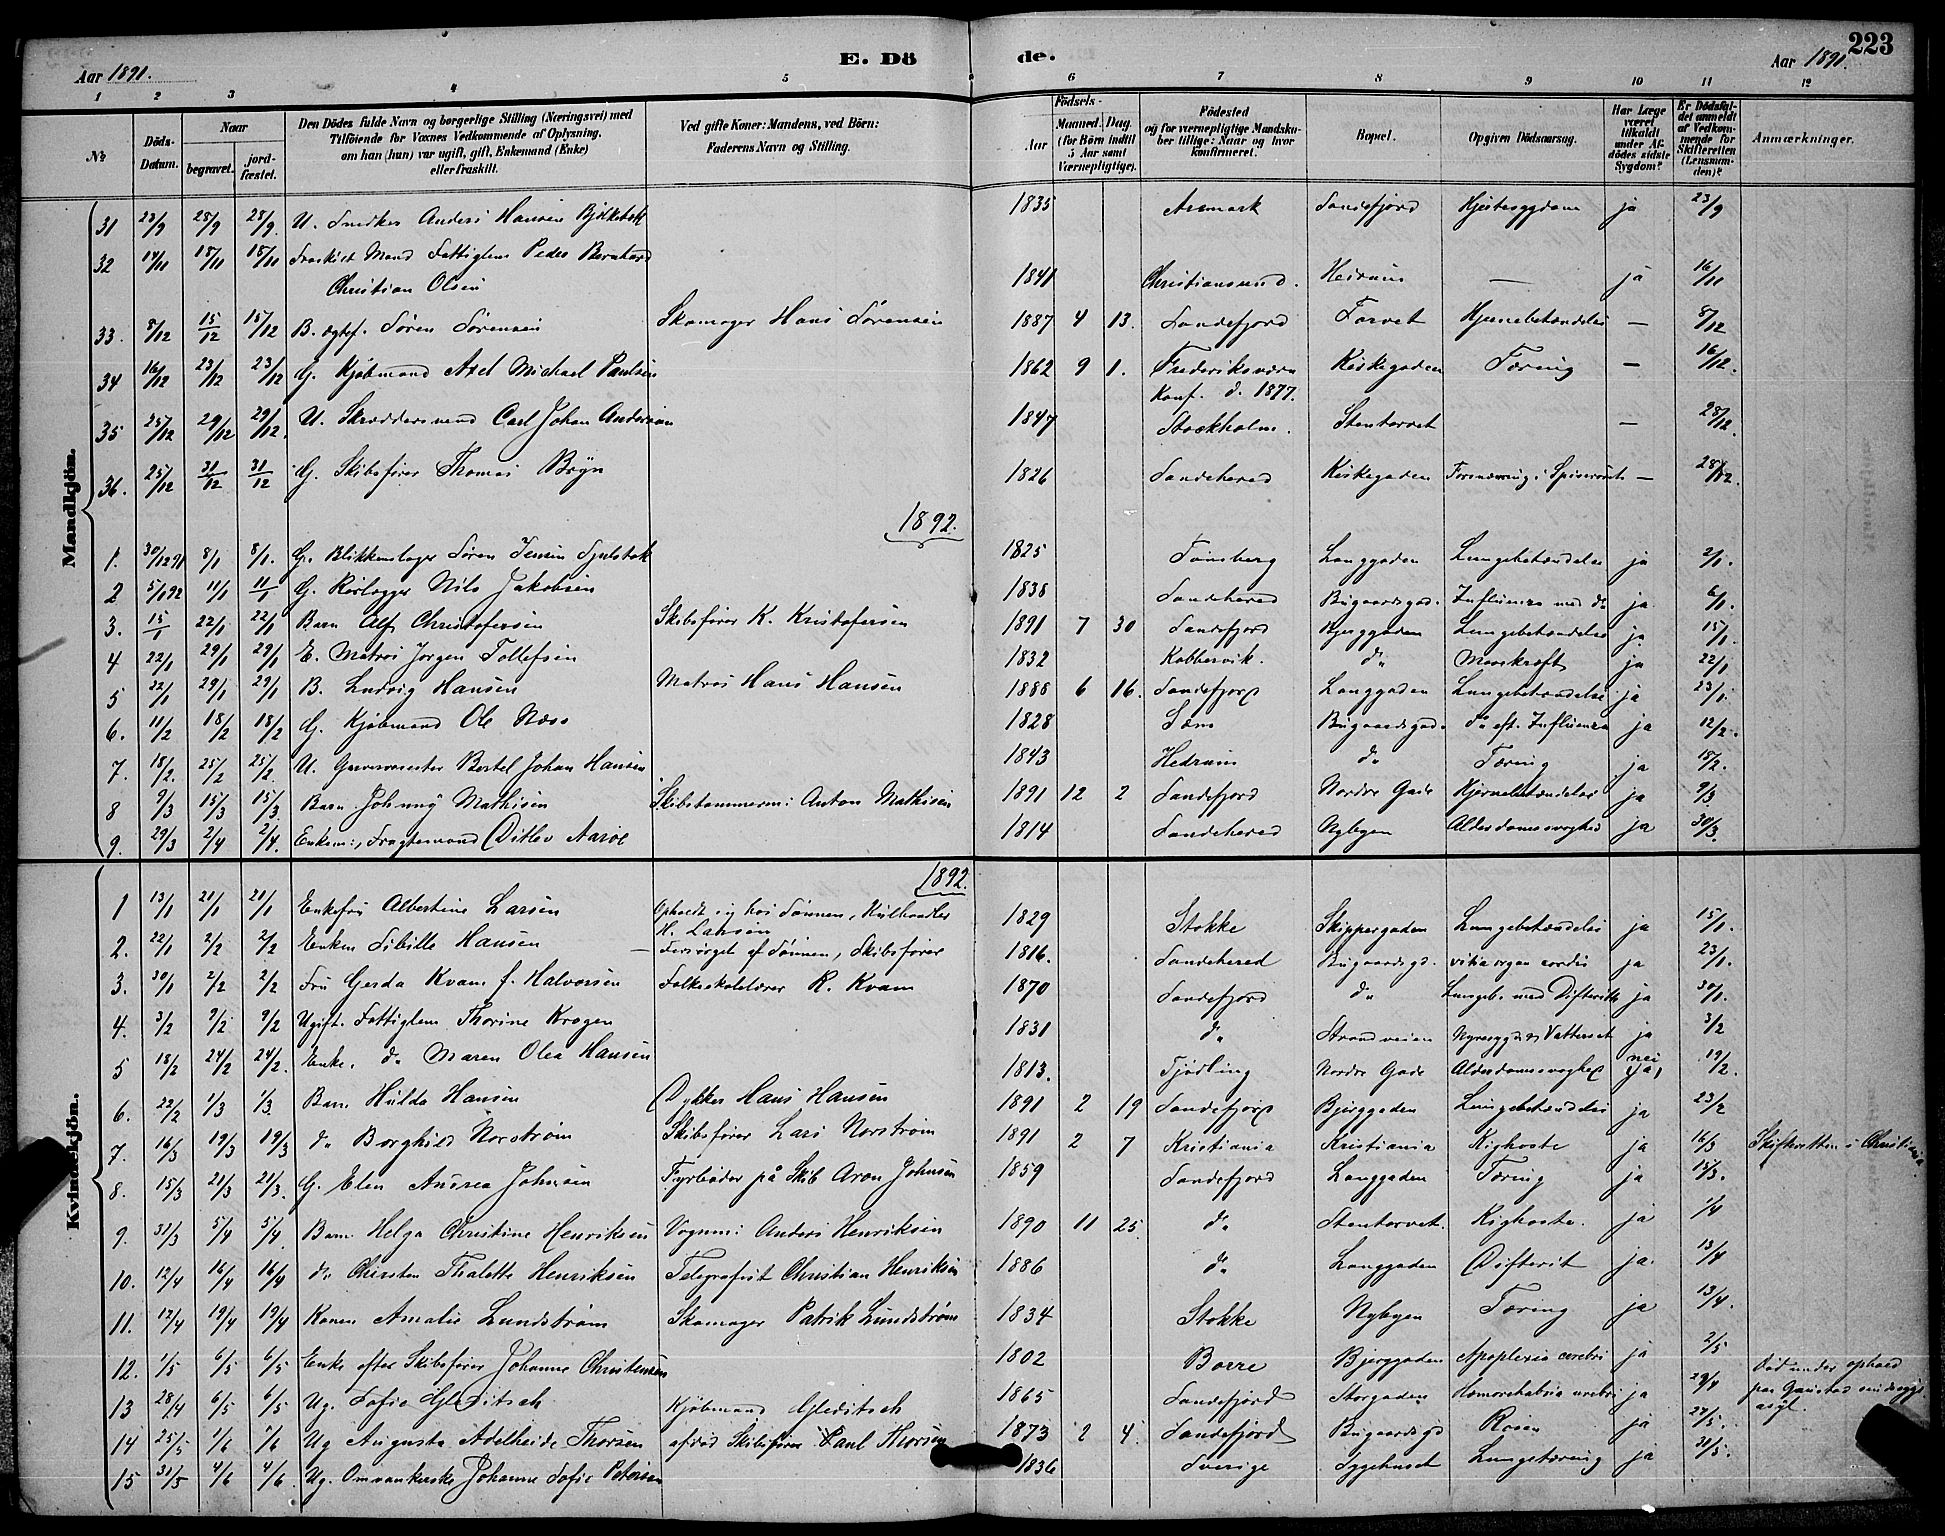 223
Aar 1891. E. Dö de. Aar 1891.
1 2 3 4 5 6 7 8 9 10 11 12
No. Döds-Datum. Naar begravet. jordfæstet. Den Dödes fulde Navn og borgerlige Stilling (Næringsvei) med Tilföiende for Voxnes Vedkommende af Oplysning, om han (hun) var ugift, gift, Enkemand (Enke) eller fraskilt. Ved gifte Koner: Mandens, ved Börn: Faderens Navn og Stilling. Födsels- Aar Maaned. Dag. (for Börn indtil 5 Aar samt Værnepligtige). Födested og for værnepligtige Mandskaber tillige: Naar og hvor konfirmeret. Bopæl. Opgiven Dödsaarsag. Har Læge været tilkaldt under Afdödes sidste Sygdom? Er Dödsfaldet anmeldt af Vedkommende for Skifteretten (Lensmanden)? Anmærkninger.
Mandkjön.
31 23/9 28/9 28/9. U. Snedker Anders Hansen Bjölkebek 1835 Aremark Sandefjord Hjertesygdom ja 23/9
32 14/11 18/11 18/11 Fraskilt Mand Fattiglem Peder Bernhard
Christian Olsen 1841 Christianssund. Hedrum — ja 16/11
33. 8/12 15/12 15/12 B. ægtef. Sören Sörensen Skomager Hans Sörensen 1887 4 13. Sandefjord Torvet Hjernebetændelse — 8/12
34 16/12 23/12 23/12 G. Kjöbmand Axel Michael Paulsen 1862 9 1. Frederiksværn Kirkegaden Tæring — 16/12.
Konf. d. 1877.
35 25/12 29/12 29/12. U. Skreddersvend Carl Johan Anderson 1847 Stockholm. Stentorvet — 28/12.
36. 25/12 31/12 31/12 G. Skibsfører Thomas Bryn 1826 Sandeherred Kirkegaden Forsnævring i Spiserøret — 28/12.
1892.
1. 30/12 91 8/1 8/1. G. Blikkenslager Sören Jensen 1825 Tønsberg Langgaden Lungebetændelse ja 2/1.
2 5/1 92 11/1 11/1 G. Rørlægger Nils Jakobsen 1838 Sandeherred Bugaardsgd. Influenza med do ja 6/1.
3. 15/1 22/1 22/1 Barn Alf Christofersen Skibsfører K. Kristofersen 1891 7 30 Sandefjord Bjerggaden Lungebetændelse ja 15/1.
4 22/1 29/1 29/1 E. Matros Jørgen Tollefsen 1832 Kobbervik. do Mavekræft ja 22/1
5 22/1 29/1 29/1 B. Ludvig Hansen Matros Hans Hansen 1888 6 16. Sandefjord Langgaden Lungebetændelse ja 23/1.
6. 11/2 18/2 18/2 G. Kjöbmand Ole Næss 1828 Sem Bugaardsgd. do eft. Influenza ja 12/2.
7. 18/2. 25/2 25/2. U. Garvermester Bertel Johan Hansen 1843 Hedrum do Tæring ja 18/2.
8 9/3 15/3 15/3. Barn Johnny Mathisen Skibstømmerm: Anton Mathisen 1891 12 2 Sandefjord Nordre Gade Hjernebetændelse ja 9/3
9. 29/3 2/4 2/4. Enkem:, Fragtemand Ditlev Aarøe 1814 Sandeherred Nybyen Alderdomssvaghed ja 30/3.
Kvindekjön.
1892.
1 13/1 20/1 20/1 Enkefru Albertine Larsen Opholdt sig hos Sønnen, Kulhandler
H. Larsen 1829 Stokke Skippergaden Lungebetændelse ja 15/1.
2. 22/1 2/2 2/2 Enken Sibille Hansen — Forsørget af Sønnen, Skibsfører 1816. Sandeherred Bugaardsgd. vitia organ cordis ja 23/1.
3. 30/1 2/2 2/2 Fru Gerda Kvam f. Halvorsen Folkeskolelærer R. Kvam 1870 Sandefjord do Lungeb. med Difterit ja 30/1.
4. 3/2 9/2 9/2 Ugift. Fattiglem Thorine Krogen 1831 do Strandveien Nyresygd. & Vattersot ja 3/2
5 18/2 24/2 24/2. Enke, do Maren Olea Hansen 1813. Tjødling Nordre Gade Alderdomssvaghed nei 19/2.
6. 22/2 1/3 1/3. Barn Hulda Hansen Dykker Hans Hansen 1891 2 19 Sandefjord Bjerggaden Lungebetændelse ja 23/2
7. 16/3 19/3 19/3 do Borghild Norstrøm Skibsfører Lars Norstrøm 1891 2 7 Kristiania Kristiania Kighoste ja 16/3 Skifteretten i Christiania
8. 15/3 21/3 21/3. G. Elen Andrea Johnsen Fyrbøder på Skib Aron Johnsen 1859 Sandefjord Langgaden Tæring ja 15/3.
9. 31/3 5/4 5/4. Barn Helga Christine Henriksen Vognm: Anders Henriksen 1890 11 25 do Stentorvet. Kighoste. ja 1/4
10. 12/4 16/4 16/4 do Chirsten Thalette Henriksen Telegrafist Christian Henriksen 1886 do Langgaden Difterit ja. 13/4
11. 12/4 19/4 19/4 Konen Amalie Lundstrøm Skomager Patrik Lundstrøm 1834 Stokke Nybyen Tæring ja 13/4.
12. 1/5 6/5 6/5 Enke efter Skibsfører Johanne Christensen 1802 Borre Bjerggaden Apoplexia cerebri ja 2/5
13 28/4 6/5 6/5 Ug. Sofie Gleditsch Kjöbmand Gleditsch 1865 Sandefjord Storgaden cerebri ja 29/4 Död under ophold paa Gaustad sindssyge asyl.
14 25/5 1/6 1/6 Ug Augusta Adelheide Thorsen afdød Skibsfører Paul Thorsen 1873 2 4. Sandefjord Bugaardsgd Rosen ja 27/5.
15 31/5 4/6 4/6 Ug. Omvankerske Johanne Sofie Petersen 1836 Sverige Sygehuset Lungetæring ja 31/5.